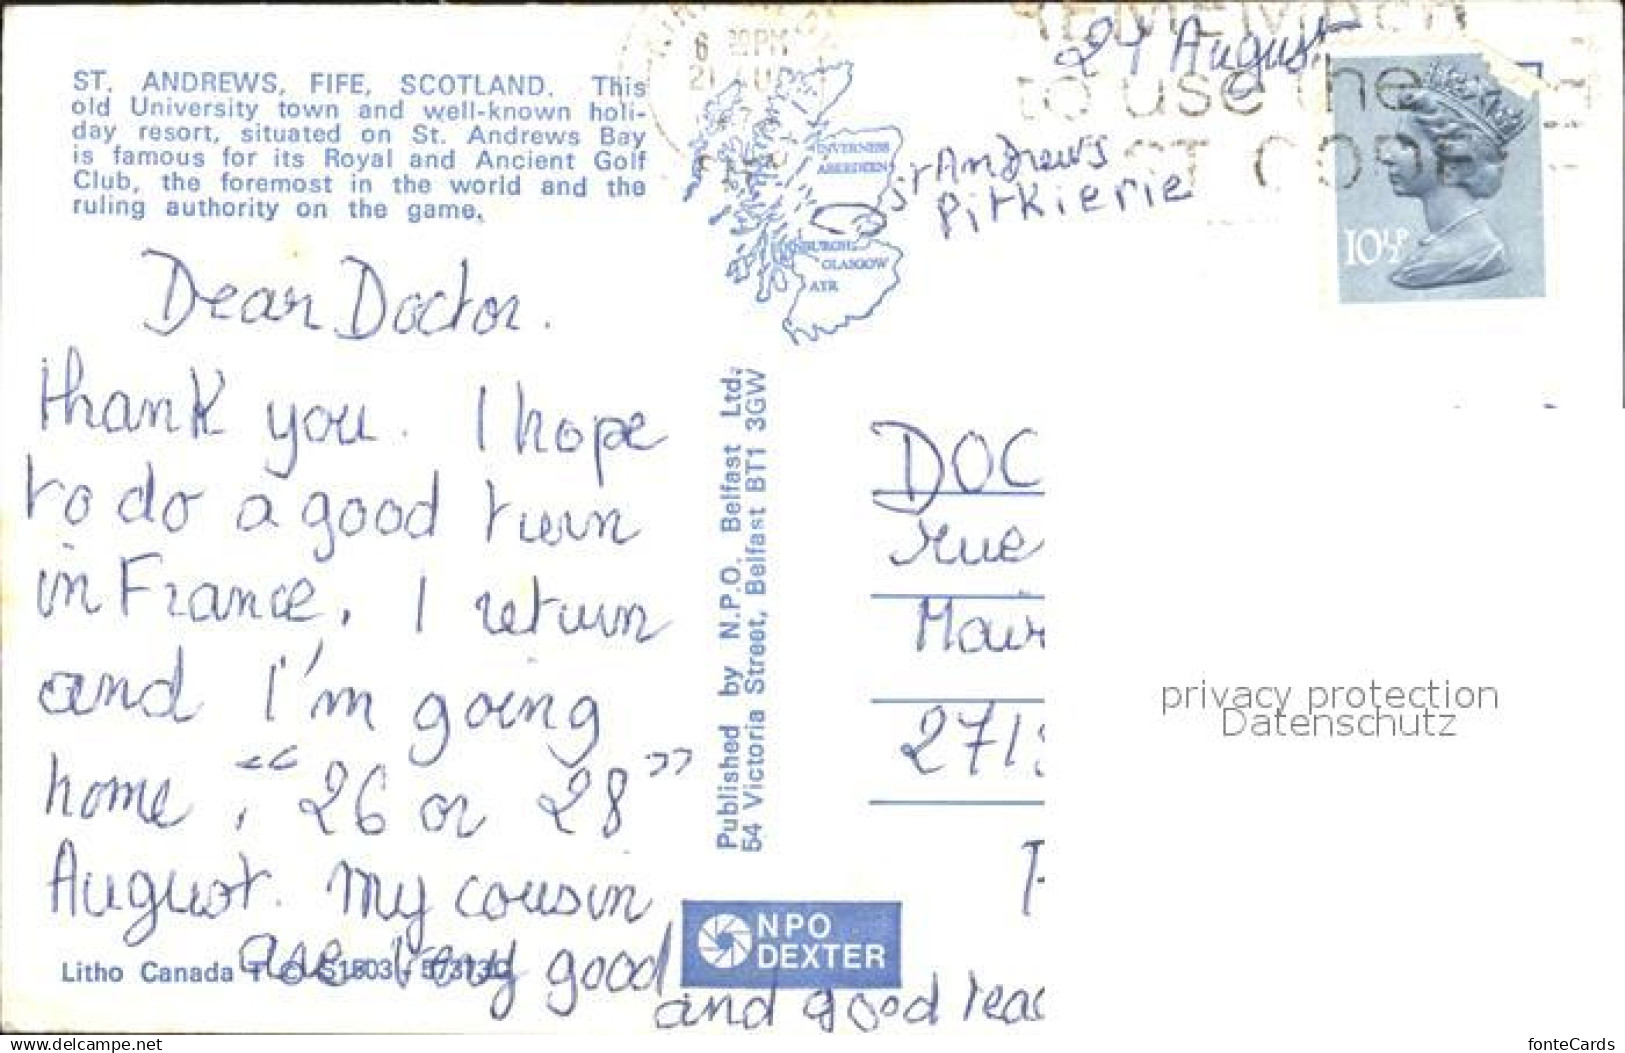 ST. ANDREWS, FIFE, SCOTLAND. This
old University town and well-known holi-
day resort, situated on St. Andrews Bay
is famous for its Royal and Ancient Golf
Club, the foremost in the world and the
ruling authority on the game.
Dear Doctor.
thank you. I hope
to do a good turn
in France, I return
and I'm going
home, "26 or 28"
August. my cousin
are very good
and good
Litho Canada
Published by N.P.O. Belfast Ltd.
54 Victoria Street, Belfast BT1 3GW
NPO
DEXTER
INVERNESS
ABERDEEN
EDINBURGH
GLASGOW
AYR
St Andrews
Pitkierie
21 August
6 30PM
to use the
10½P
DOC
rue
271
privacy protection
Datenschutz
www.delcampe.net
fonteCards